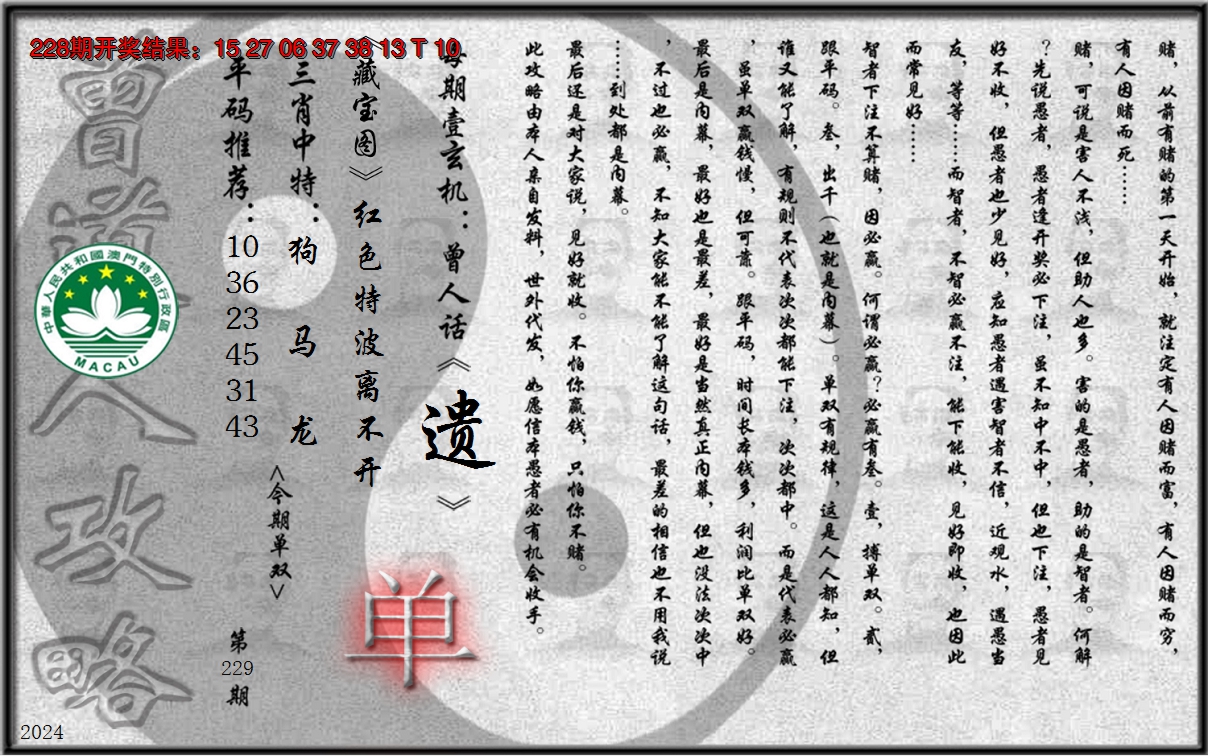 228期开奖结果：15 27 06 37 38 13 T 10
赌，从前有赌的第一天开始，就注定有人因赌而富，有人因赌而穷，
有人因赌而死……
赌，可说是害人不浅，但助人也多。害的是愚者，助的是智者。何解
？先说愚者，愚者逢开奖必下注，虽不知中不中，但也下注，愚者见
好不收，但愚者也少见好，应知愚者遇害智者不信，近观水，遇愚当
友，等等……而智者，不智必赢不注，能下能收，见好即收，也因此
而常见好……
智者下注不算赌，因必赢。何谓必赢？必赢有叁。壹，搏单双。贰，
跟平码。叁，出千（也就是内幕）。单双有规律，这是人人都知，但
谁又能了解，有规则不代表次次都能下注，次次都中。而是代表必赢
，虽单双赢钱慢，但可靠。跟平码，时间长本钱多，利润比单双好。
最后是内幕，最好也是最差，最好是当然真正内幕，但也没法次次中
，不过也必赢，不知大家能不能了解这句话，最差的相信也不用我说
……到处都是内幕。
最后还是对大家说，见好就收。不怕你赢钱，只怕你不赌。
此攻略由本人亲自发料，世外代发，如愿信本愚者必有机会收手。
每期壹玄机：曾人话《遗》
《藏宝图》红色特波离不开
三肖中特：狗 马 龙
平码推荐：10 36 23 45 31 43
<今期单双>
单
第229期
曾道人攻略
中華人民共和國澳門特別行政區
MACAU
2024